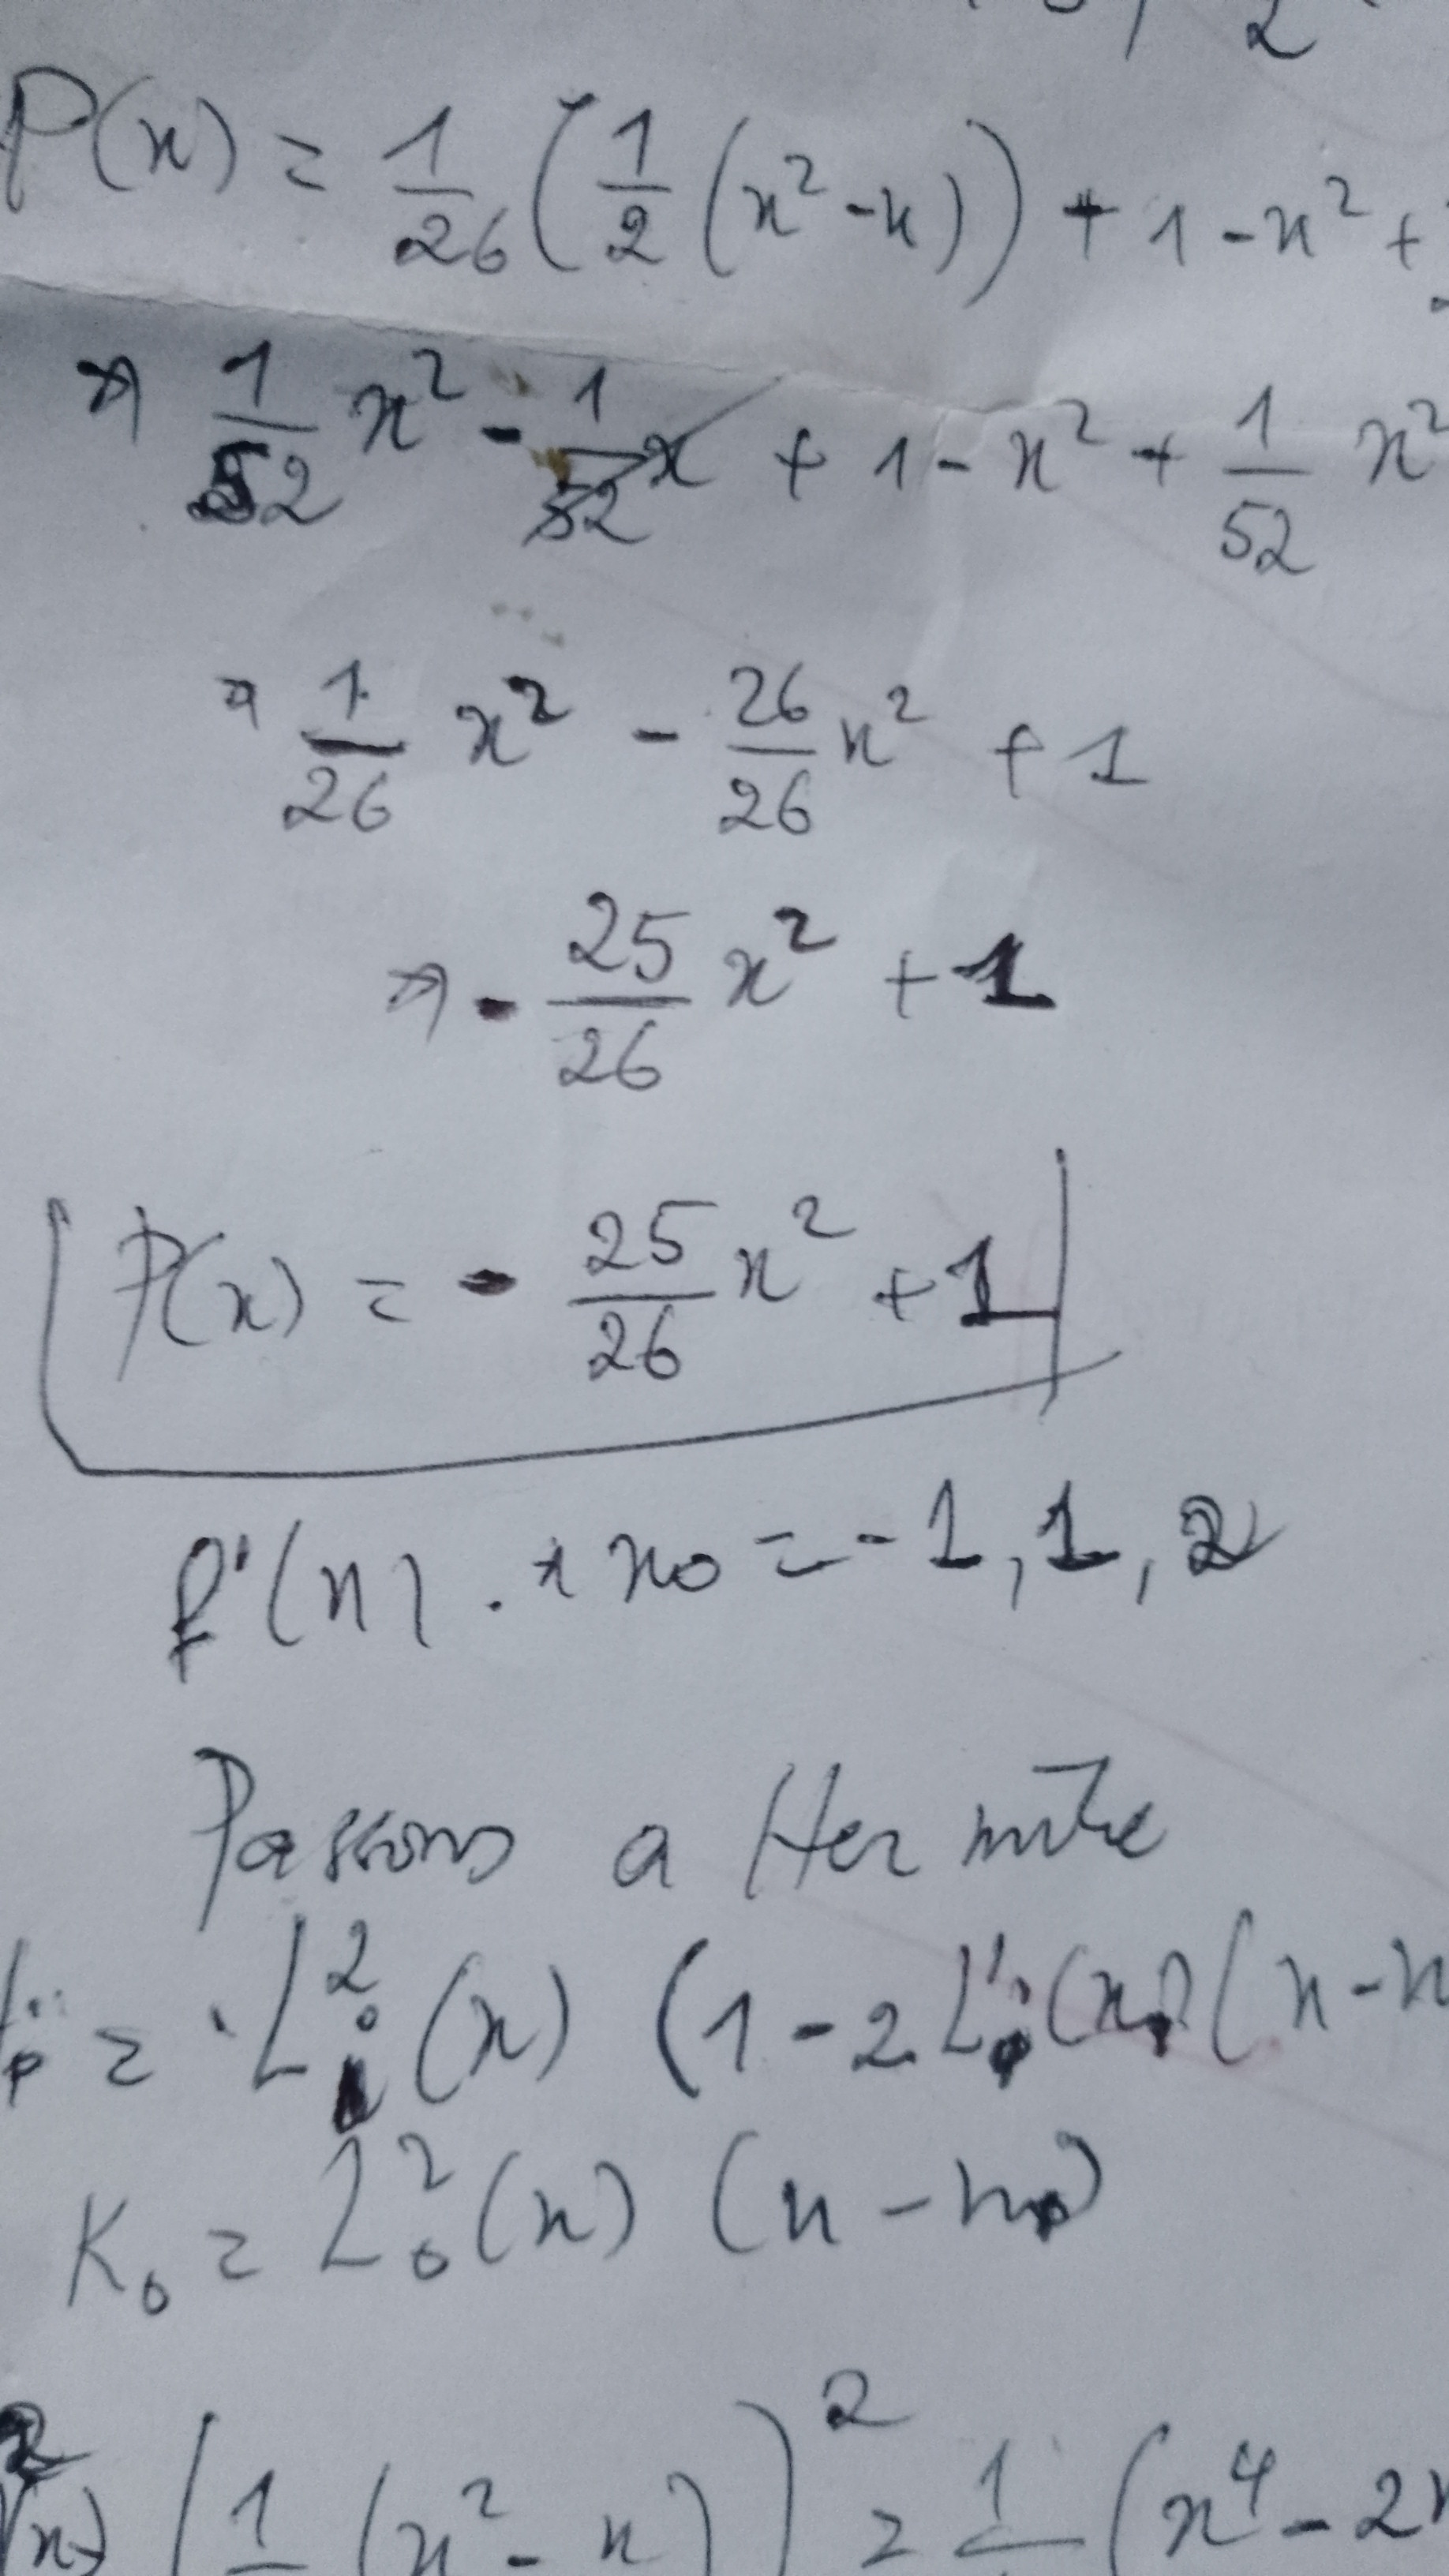 2
P(x) = 1/26 (1/2 (x² - x)) + 1 - x² +
⇒ 1/52 x² - 1/52 x + 1 - x² + 1/52 x²
⇒ 1/26 x² - 26/26 x² + 1
⇒ - 25/26 x² + 1
P(x) = - 25/26 x² + 1
f'(x) . x₀ = -1, 1, 2
Passons a Hermite
= L²ᵢ(x) (1 - 2 L'ᵢ(xᵢ) (x - x
K₀ = L²₀(x) (x - x₀)
²(x) (1 (x² - x))² = 1 (x⁴ - 2x